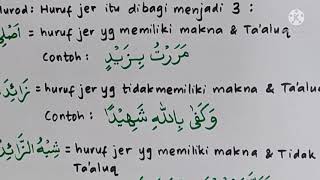 Murod: Huruf jer itu dibagi menjadi 3 :
= huruf jer yg memiliki makna & Ta'aluq = اَصْلِى
Contoh : مَرَرْتُ بِزَيْدٍ
زَائِدْ = huruf jer yg tidak memiliki makna & Ta'aluq
Contoh : وَكَفٰى بِاللّٰهِ شَهِيْدًا
شِبْهُ الزَّائِدْ = huruf jer yg memiliki makna & Tidak
Ta'aluq